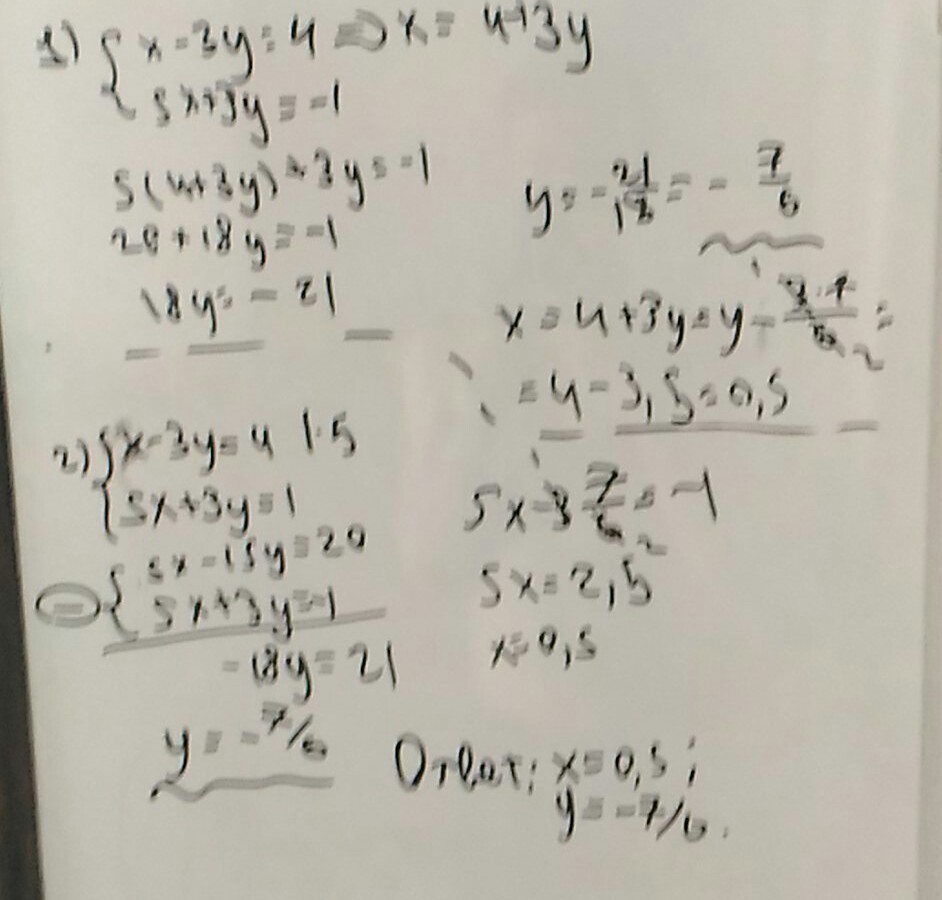 1) { x - 3y = 4 => x = 4+3y
5x+3y = -1
5(4+3y)+3y = -1
20 + 18y = -1
18y = -21
y = -21/18 = -7/6
x = 4+3y = y - 3·7/6 2 =
= 4 - 3,5 = 0,5
2) { x - 3y = 4 |·5
5x+3y = 1
{ 5x - 15y = 20
- 5x+3y = -1
-18y = 21
y = -7/6
5x - 3 7/6 2 = -1
5x = 2,5
x = 0,5
Ответ: x = 0,5 ;
y = -7/6.